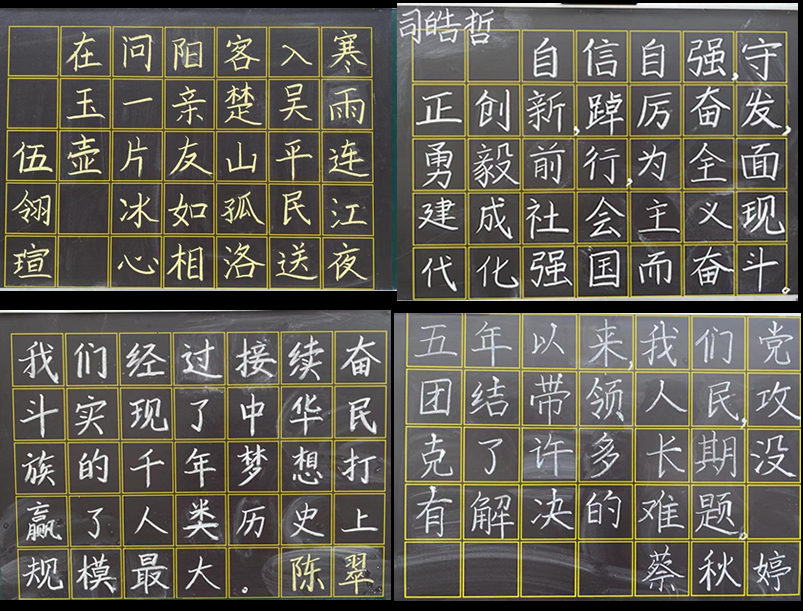 寒雨连江夜
入吴平民送
客楚山孤洛
阳亲友如相
问一片冰心
在玉壶
伍翎瑄
司皓哲
自信自强,守
正创新,踔厉奋发,
勇毅前行,为全面
建成社会主义现
代化强国而奋斗。
我们经过接续奋
斗实现了中华民
族的千年梦想打
赢了人类历史上
规模最大。陈翠
五年以来,我们党
团结带领人民,攻
克了许多长期没
有解决的难题。
蔡秋婷